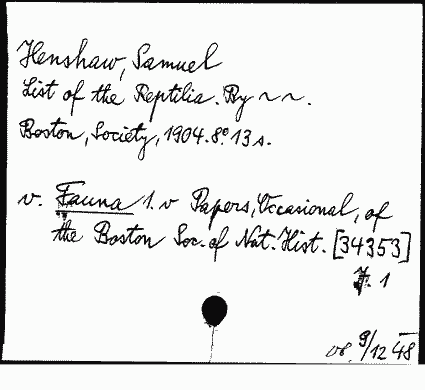 Henshaw, Samuel
List of the Reptilia. By ~ ~.
Boston, Society, 1904. 8º. 13 s.
v. Fauna 1. v Papers, Occasional, of
the Boston Soc. of Nat. Hist. [34353]
7. 1
08. 9/12 48